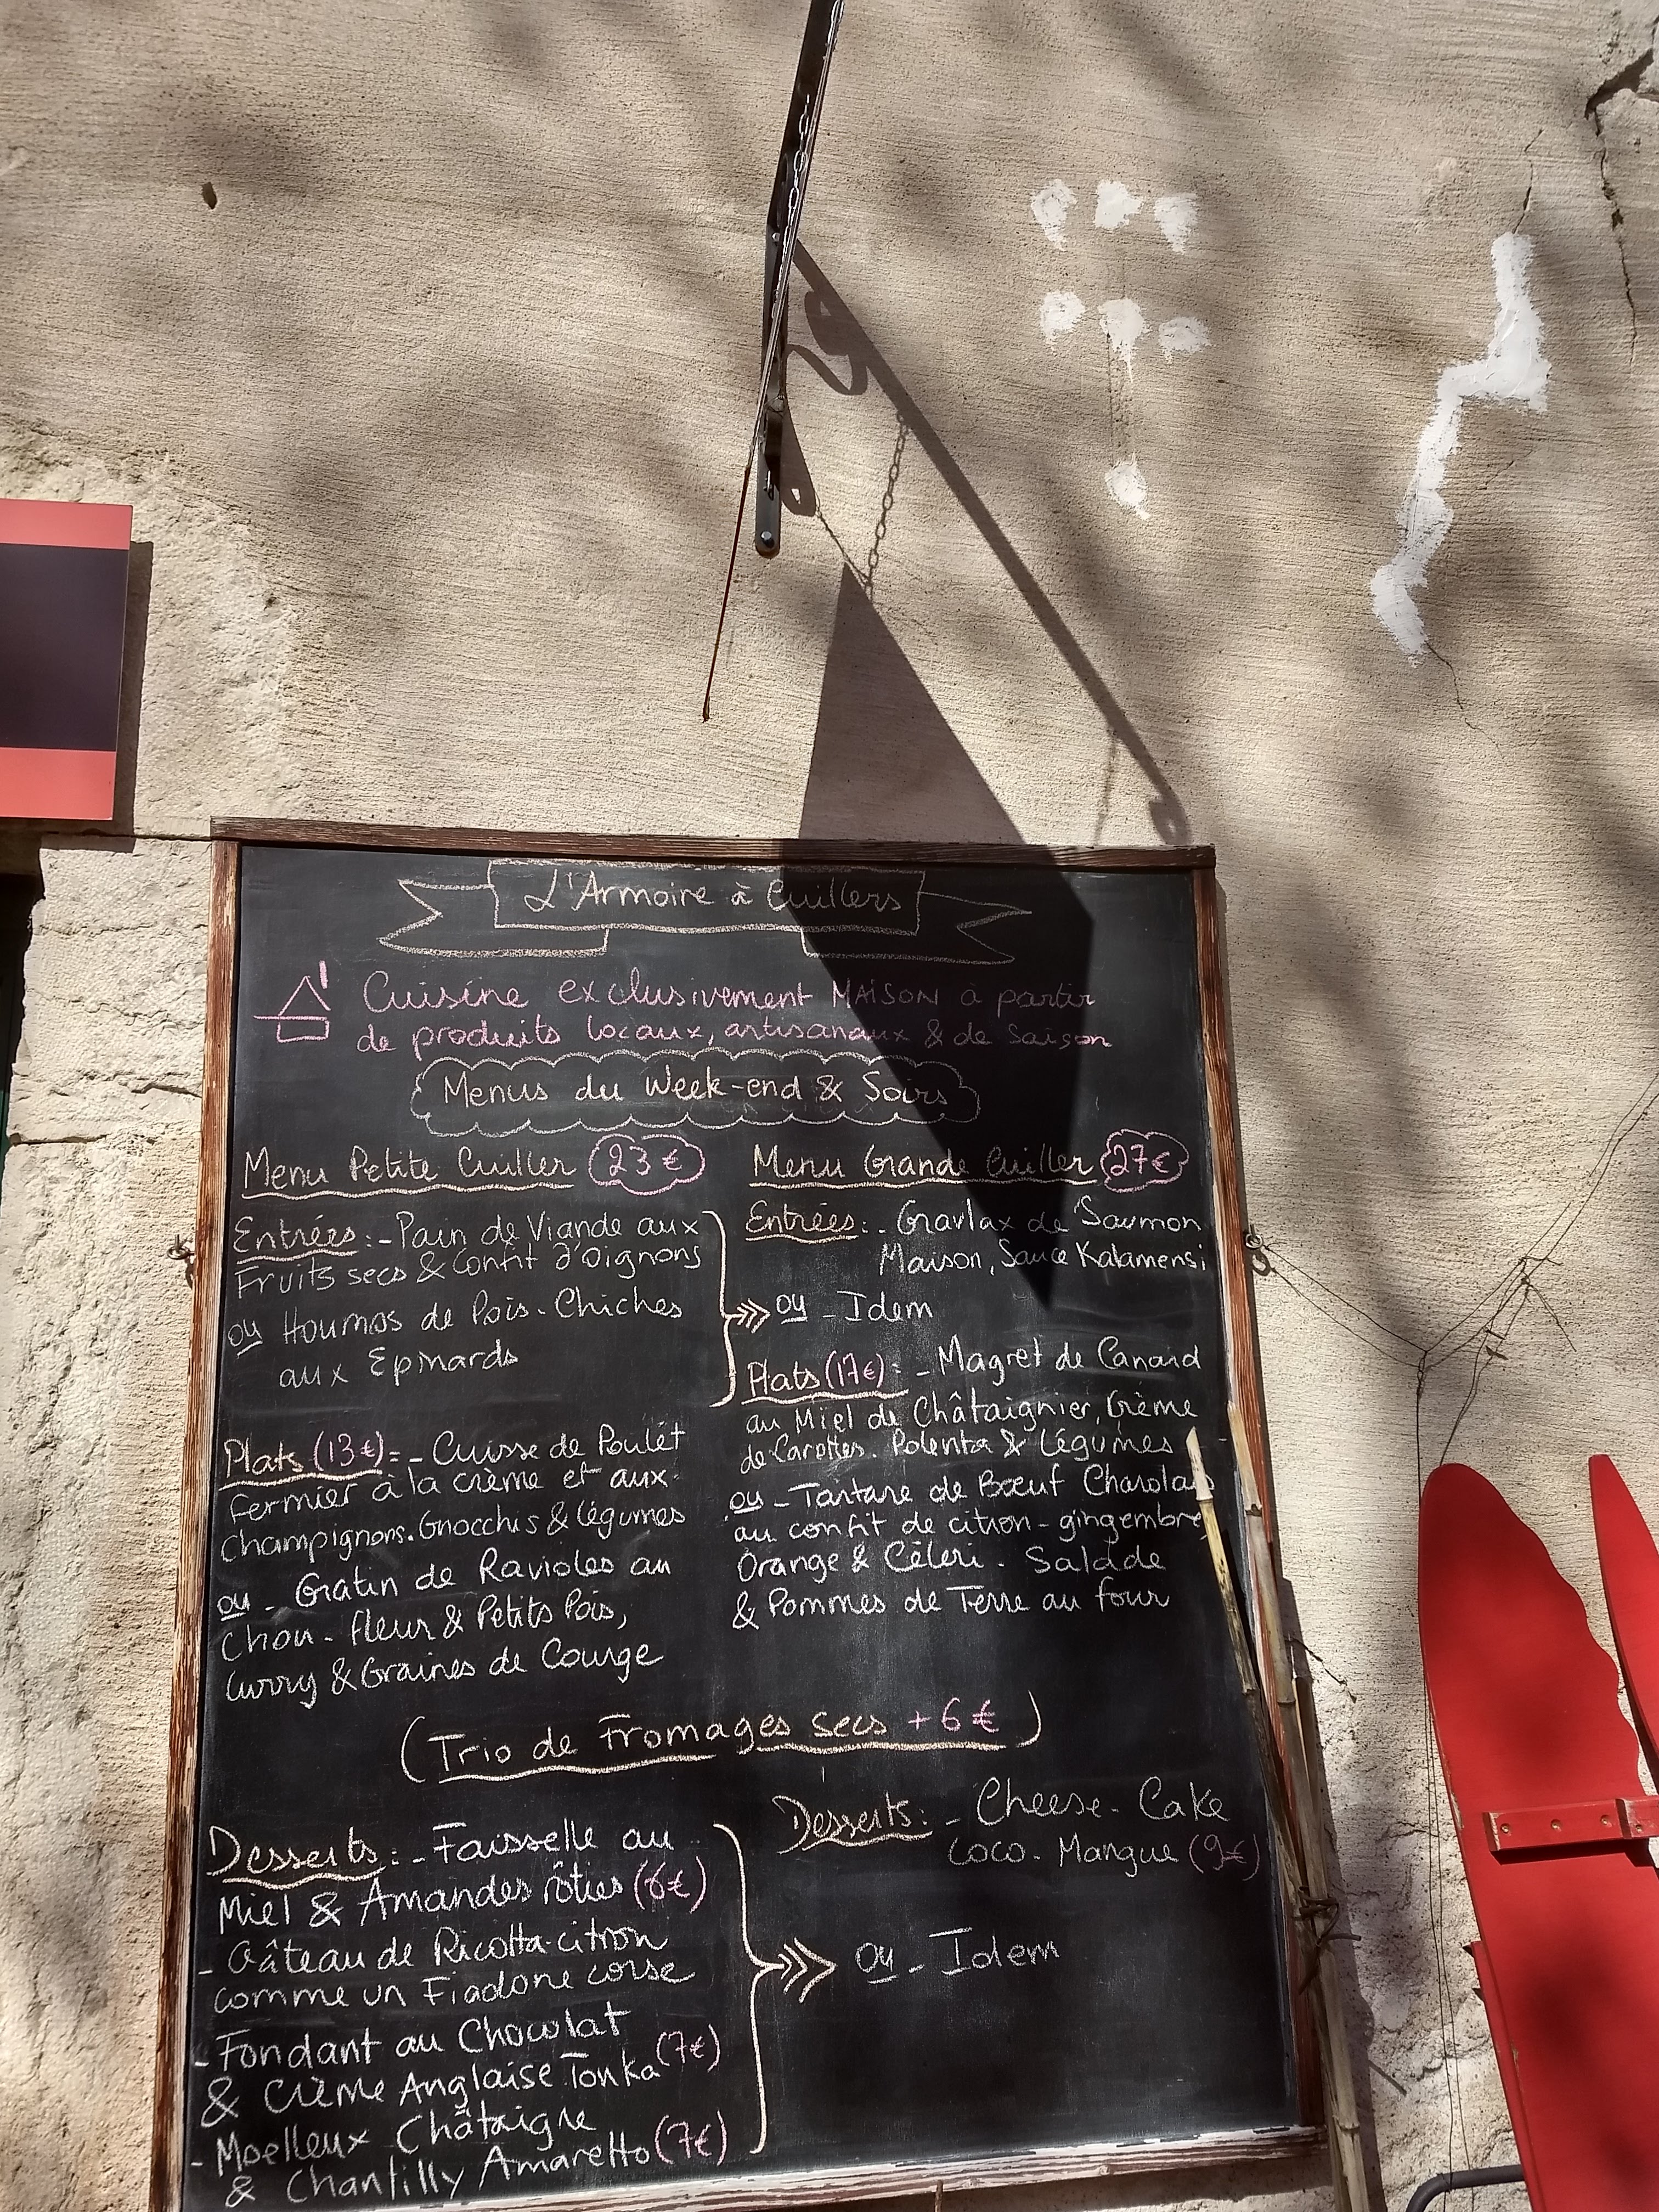 L'Armoire à Cuillers
Cuisine exclusivement MAISON à partir
de produits locaux, artisanaux & de saison
Menus du Week-end & Soirs
Menu Petite Cuiller 23€
Entrées: - Pain de Viande aux
Fruits secs & Confit d'Oignons
ou Houmos de Pois-Chiches
aux Epinards
Plats (13€): - Cuisse de Poulet
Fermier à la crème et aux
champignons. Gnocchis & légumes
ou - Gratin de Ravioles au
Chou-fleur & Petits Pois,
Curry & Graines de Courge
Menu Grande Cuiller 27€
Entrées: - Gravlax de Saumon
Maison, Sauce Kalamensi
ou - Idem
Plats (17€): - Magret de Canard
au Miel de Châtaignier, Crème
de Carottes. Polenta & Légumes
ou - Tartare de Bœuf Charolais
au confit de citron-gingembre
Orange & Céleri - Salade
& Pommes de Terre au four
(Trio de Fromages secs +6€)
Desserts: - Faisselle au
Miel & Amandes rôties (6€)
- Gâteau de Ricotta-citron
comme un Fiadone corse
- Fondant au Chocolat
& Crème Anglaise Tonka (7€)
- Moelleux Châtaigne
& Chantilly Amaretto (7€)
Desserts: - Cheese-Cake
Coco-Mangue (9€)
ou - Idem